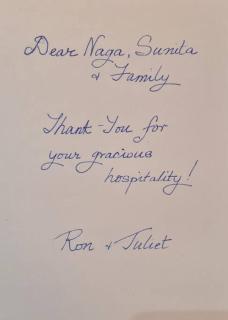 Dear Naga, Sunita
& Family
Thank-You for
your gracious
hospitality!
Ron & Juliet